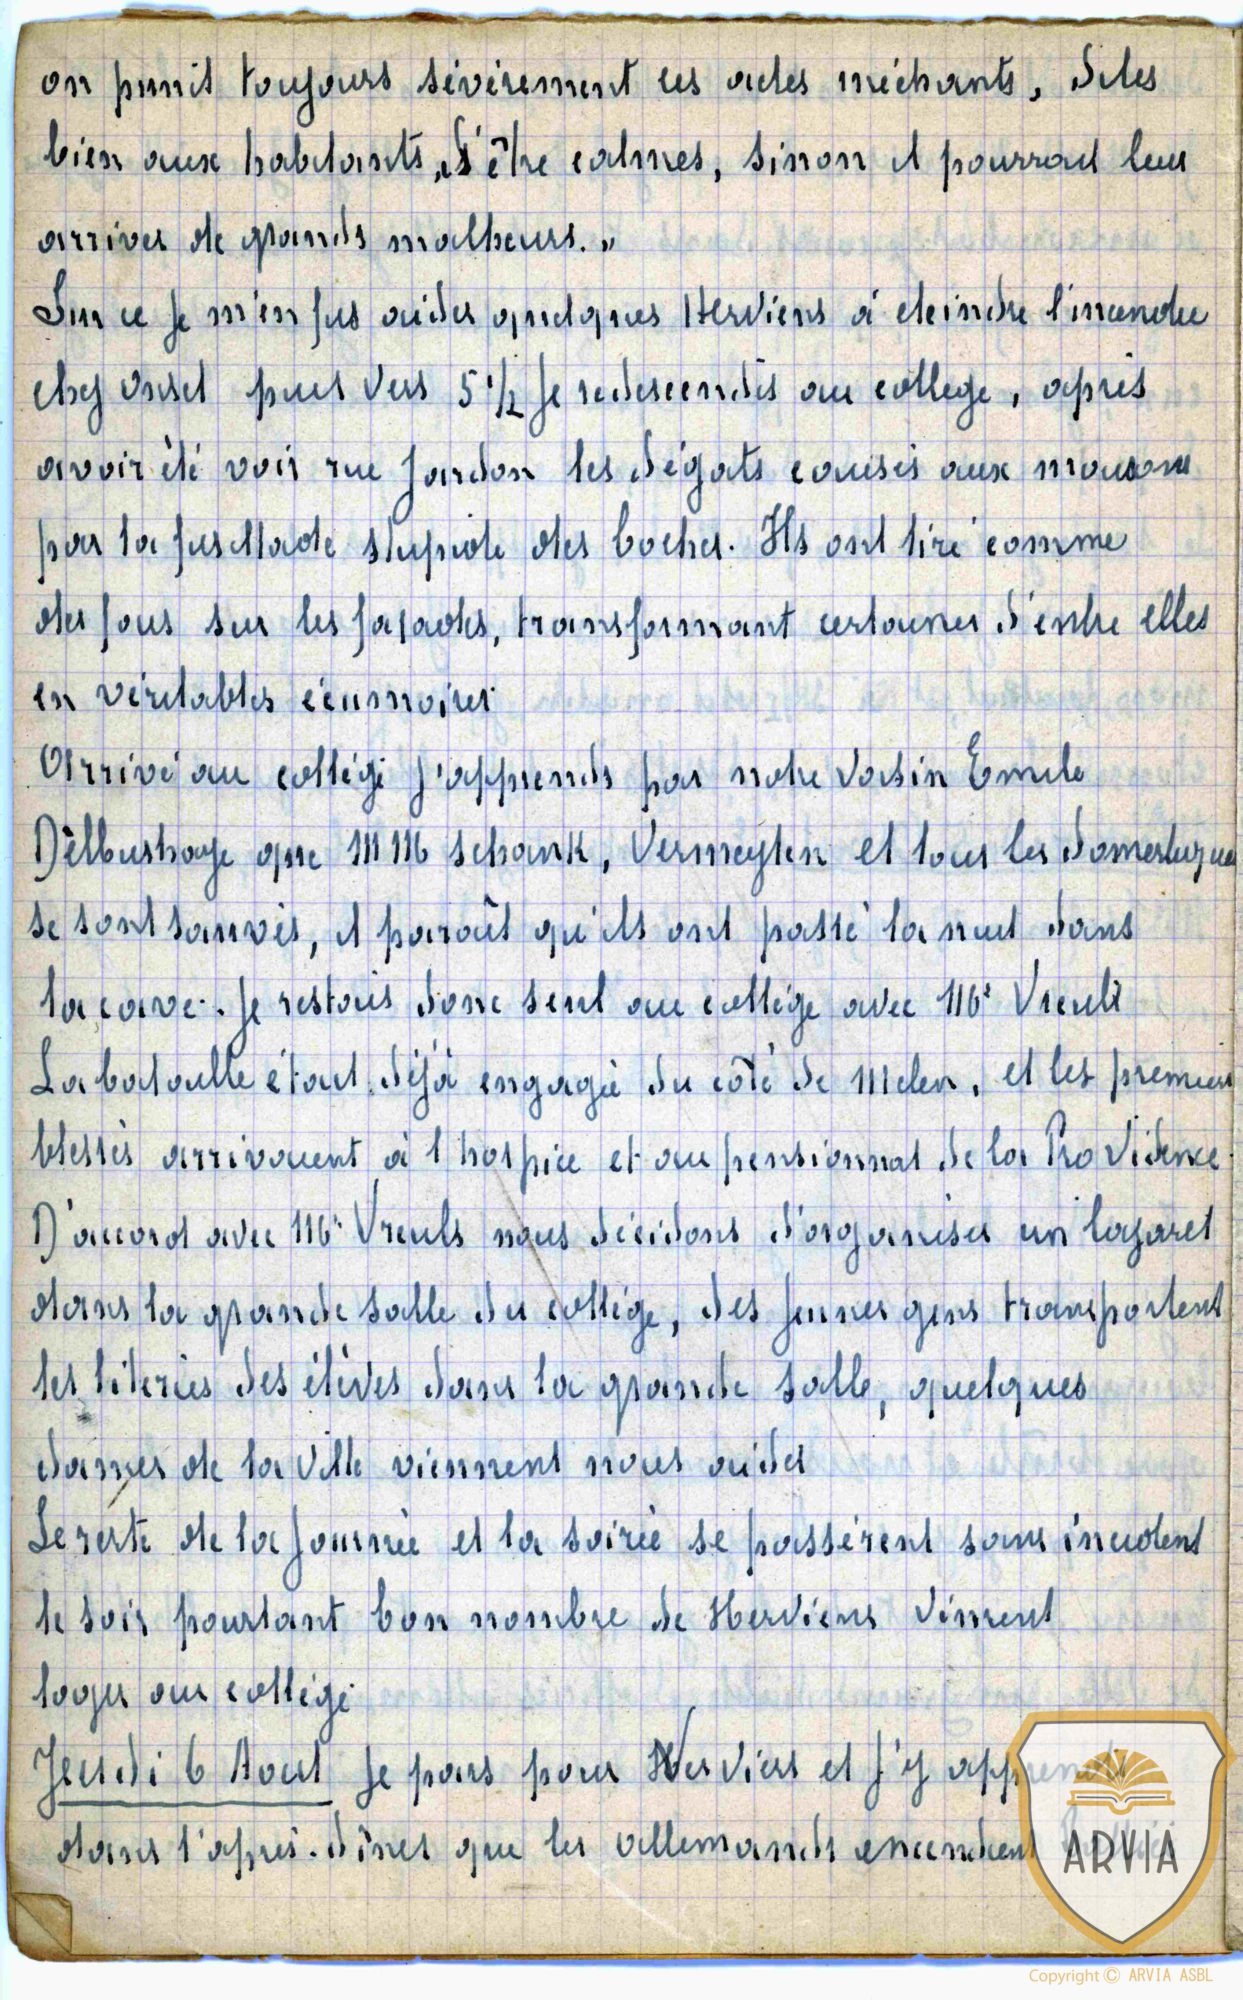 on punit toujours sévèrement ces actes méchants, Dites
bien aux habitants, d'être calmes, sinon il pourrait leur
arriver de grands malheurs."
Sur ce je m'en fus aider quelques Herviens à eteindre l'incendie
chez puis vers 5 1/2 je redescendis au college, après
avoir été voir rue Jardon les dégats causés aux maisons
par la fusillade stupide des boches. Ils ont tiré comme
des fous sur les façades, transformant certaines d'entre elles
en véritables écumoires
Arrivé au collége j'apprends par notre voisin Emile
Delbushaye que MM Schank, Vermeylen et tous les domestiques
se sont sauvés, il paraît qu'ils ont passé la nuit dans
la cave. Je restais donc seul au collége avec Mr Vreuls
La bataille était déjà engagée du côté de Melen, et les premiers
blessés arrivaient à l'hospice et au pensionnat de la Providence.
D'accord avec Mr Vreuls nous décidons d'organiser un lazaret
dans la grande salle du collége, des jeunes gens transportent
les literies des élèves dans la grande salle, quelques
dames de la ville viennent nous aider
Le reste de la journée et la soirée se passèrent sans incident
le soir pourtant bon nombre de Herviens vinrent
loger au collége
Jeudi 6 Aout je pars pour Verviers et j'y apprends
dans l'après-dîner que les allemands incendient
ARVIA
Copyright © ARVIA ASBL